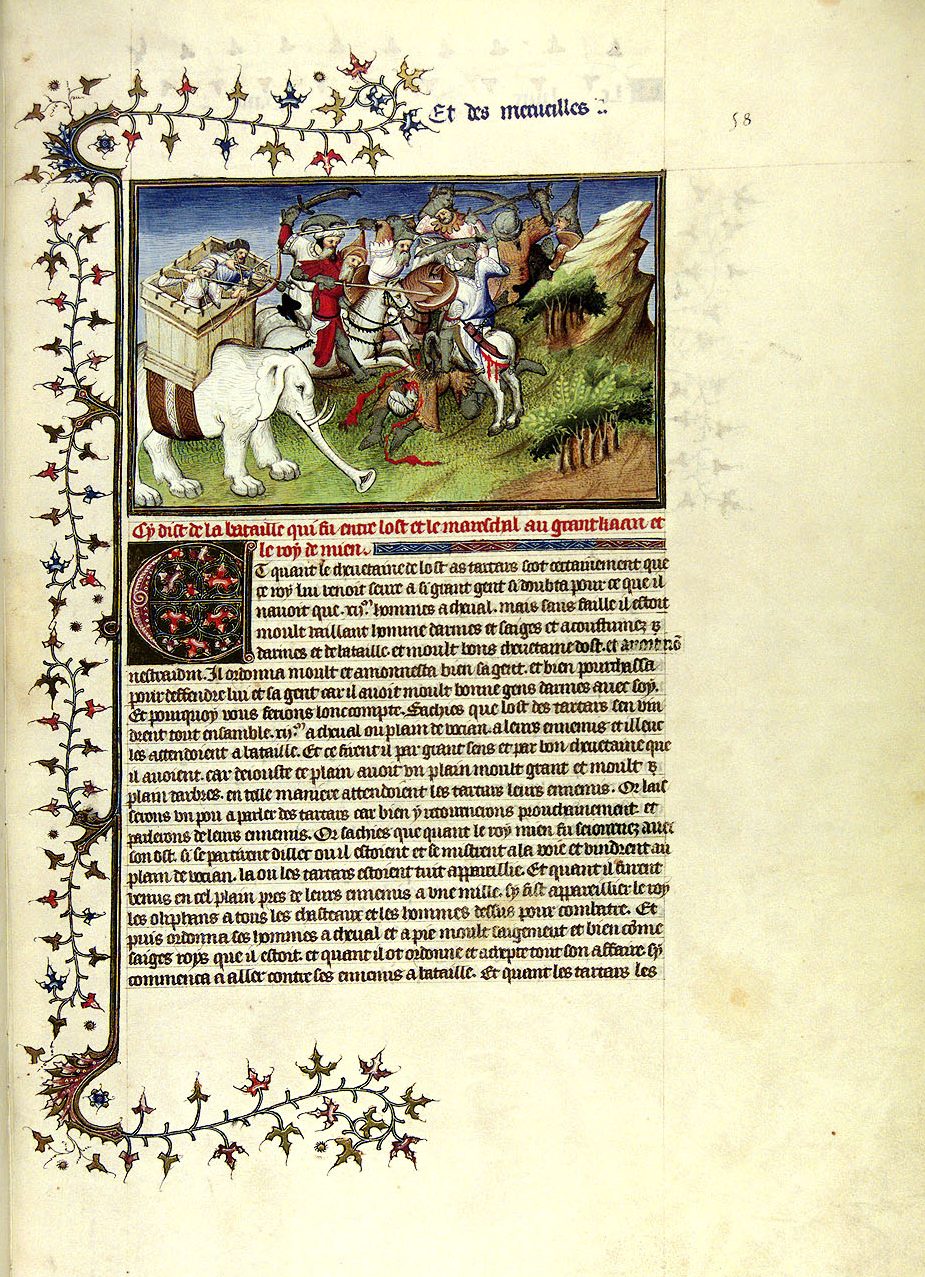 Et des merueilles
58
Cy dist de la bataille qui fu entre lost et le mareschal au grant kaan et
le roy de mien.
Et quant le cheuetaine de lost as tartars scot certainement que
ce roy lui venoit seure a si grant gent si doubta pour ce que il
nauoit que .xij.m hommes a cheual. mais sans faille il estoit
moult vaillant homme darmes et saiges et acoustumez
darmes et de bataille. et moult bons cheuetaine dost. et
nestraidin. Il ordonna moult et amonnesta bien sa gent. et bien pourchassa
pour deffendre lui et sa gent car il auoit moult bonne gens darmes auec soy.
Et pourquoy vous feroies lonc compte. Sachies que lost des tartars sen vin
drent tout ensamble .xij.m a cheual ou plain de vocian. a leurs ennemis et illeuc
les attendoient a bataille. Et ce firent il par grant sens et par bon cheuetaine que
il auoient. car deiouste ce plain auoit vn plain moult grant et moult
plain darbres. en telle maniere attendoient les tartars leurs ennemis. Or lais
serons vn pou a parler des tartars car bien y retournerons prouchainement. et
parlerons de leurs ennemis. Or sachies que quant le roy mien fu seiournez auec
son ost. si se partirent dillec ou il estoient et se mistrent a la voie et vindrent au
plain de vocian. la ou les tartars estoient tuit appareillie. Et quant il furent
venus en cel plain pres de leurs ennemis a vne mille. sy fist appareillier le roy
les oliphans a tous les chasteaux et les hommes dessus pour combatre. Et
puis ordonna ses hommes a cheual et a pie moult saigement et bien cõme
saiges roys que il estoit. et quant il ot ordonne et adrepte tout son affaire sy
commenca a aller contre ses ennemis a bataille. Et quant les tartars les